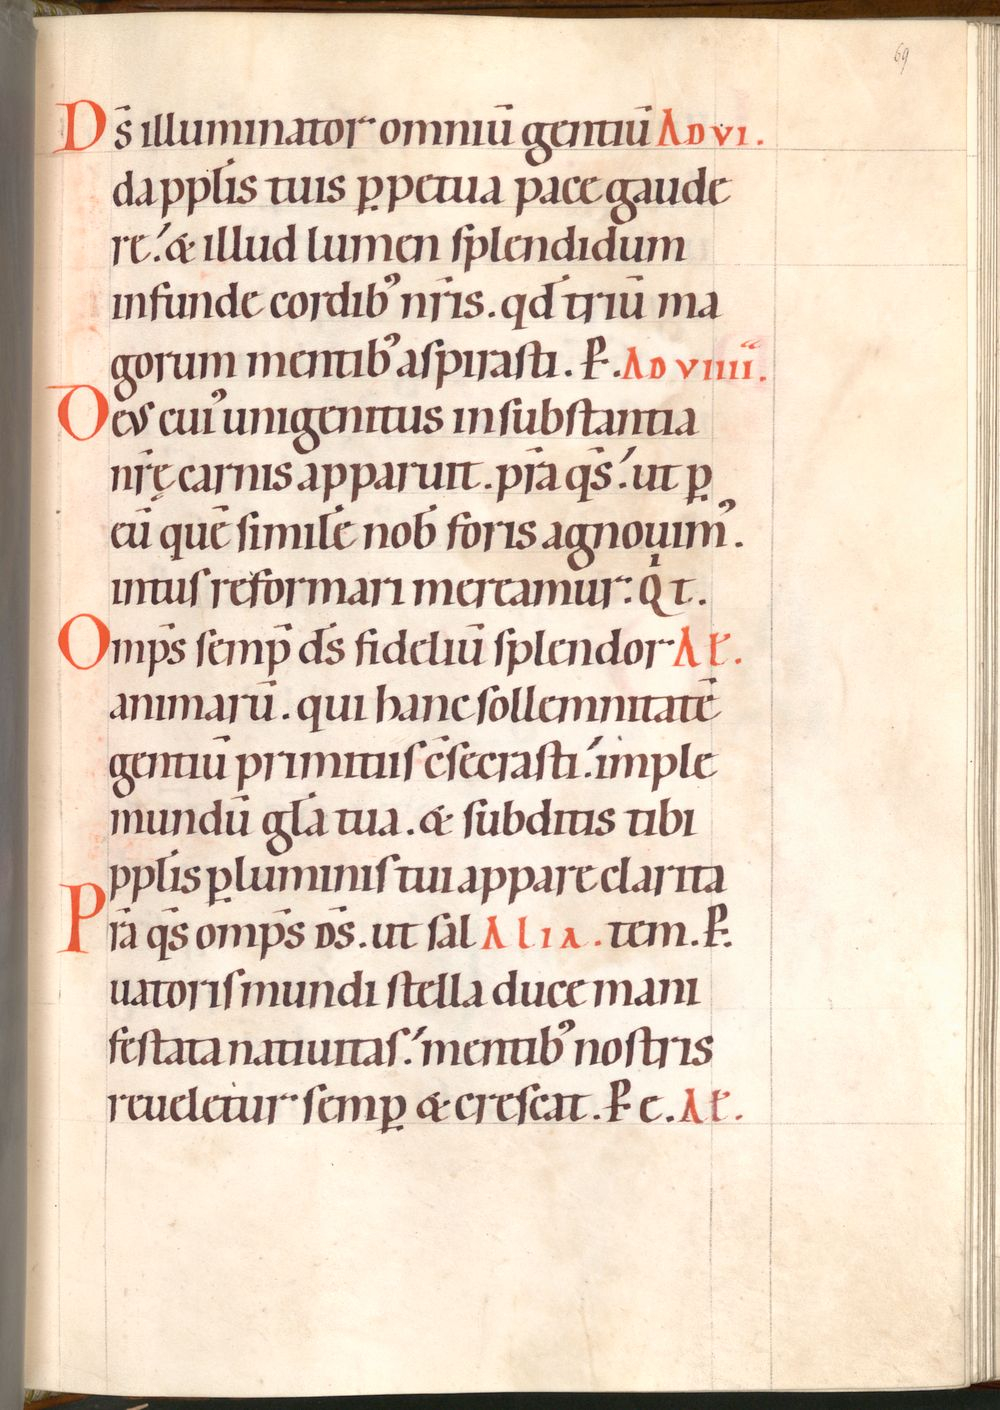 69
Ds̄ illuminator omniū gentiū AD VI.
da pplís tuis p̱petua pace gaude
re.́ & illud lumen splendidum
infunde cordib᾿ nr̄is. qđ triū ma
gorum mentib᾿ aspirasti. P̱. AD VIIII.
Deus cui᾿ unigenitus in substantia
nr̄ę carnis apparuit. pr̄a qs̄.́ ut p̱
eū quē similē nob̄ foris agnouim᾿.
intus reformari mereamur: Qi T.
Omps̄ semp̄ ds̄ fideliū splendor AĿ.
animarū. qui hanc sollemnitatē
gentiū primitiis c̄secrasti.́ imple
mundū gl̄a tua. & subditis tibi
pplís p̱ luminis tui appare clarita
Pr̄a qs̄ omps̄ DS̄. ut sal ALIA. tem. P̱.
uatoris mundi stella duce mani
festata natiuitas.́ mentib᾿ nostris
reueletur semp̱ & crescat. P̱ e. AĿ.